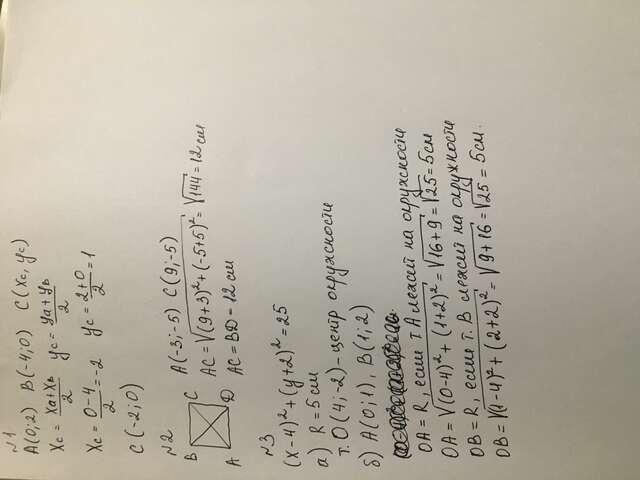 №1
A(0;2) B(-4;0) C(xc, yc)
xc = (xa+xb)/2 yc = (ya+yb)/2
xc = (0-4)/2 = -2 yc = (2+0)/2 = 1
C(-2,0)
№2
B C A D
A(-3;-5) C(9;-5)
AC = √((9+3)²+(-5+5)²) = √144 = 12 см
AC = BD = 12 см
№3
(x-4)²+(y+2)²=25
а) R = 5 см
т. O(4;-2) - центр окружности
б) A(0;1), B(1;2)
OA = R, если т A лежит на окружности
OA = √((0-4)²+(1+2)²) = √16+9 = √25 = 5 см
OB = R, если т. B лежит на окружности
OB = √((1-4)²+(2+2)²) = √9+16 = √25 = 5 см.